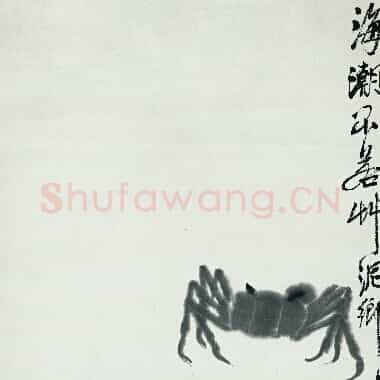 海潮不若草泥鄉
Shufawang.CN